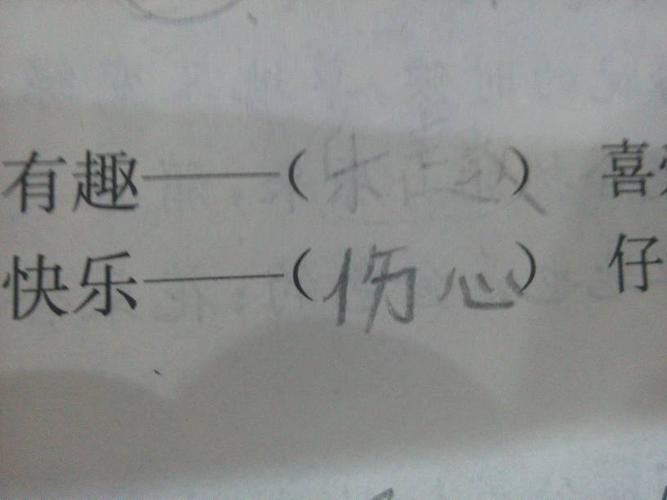 有趣——（乐趣） 喜
快乐——（伤心） 仔